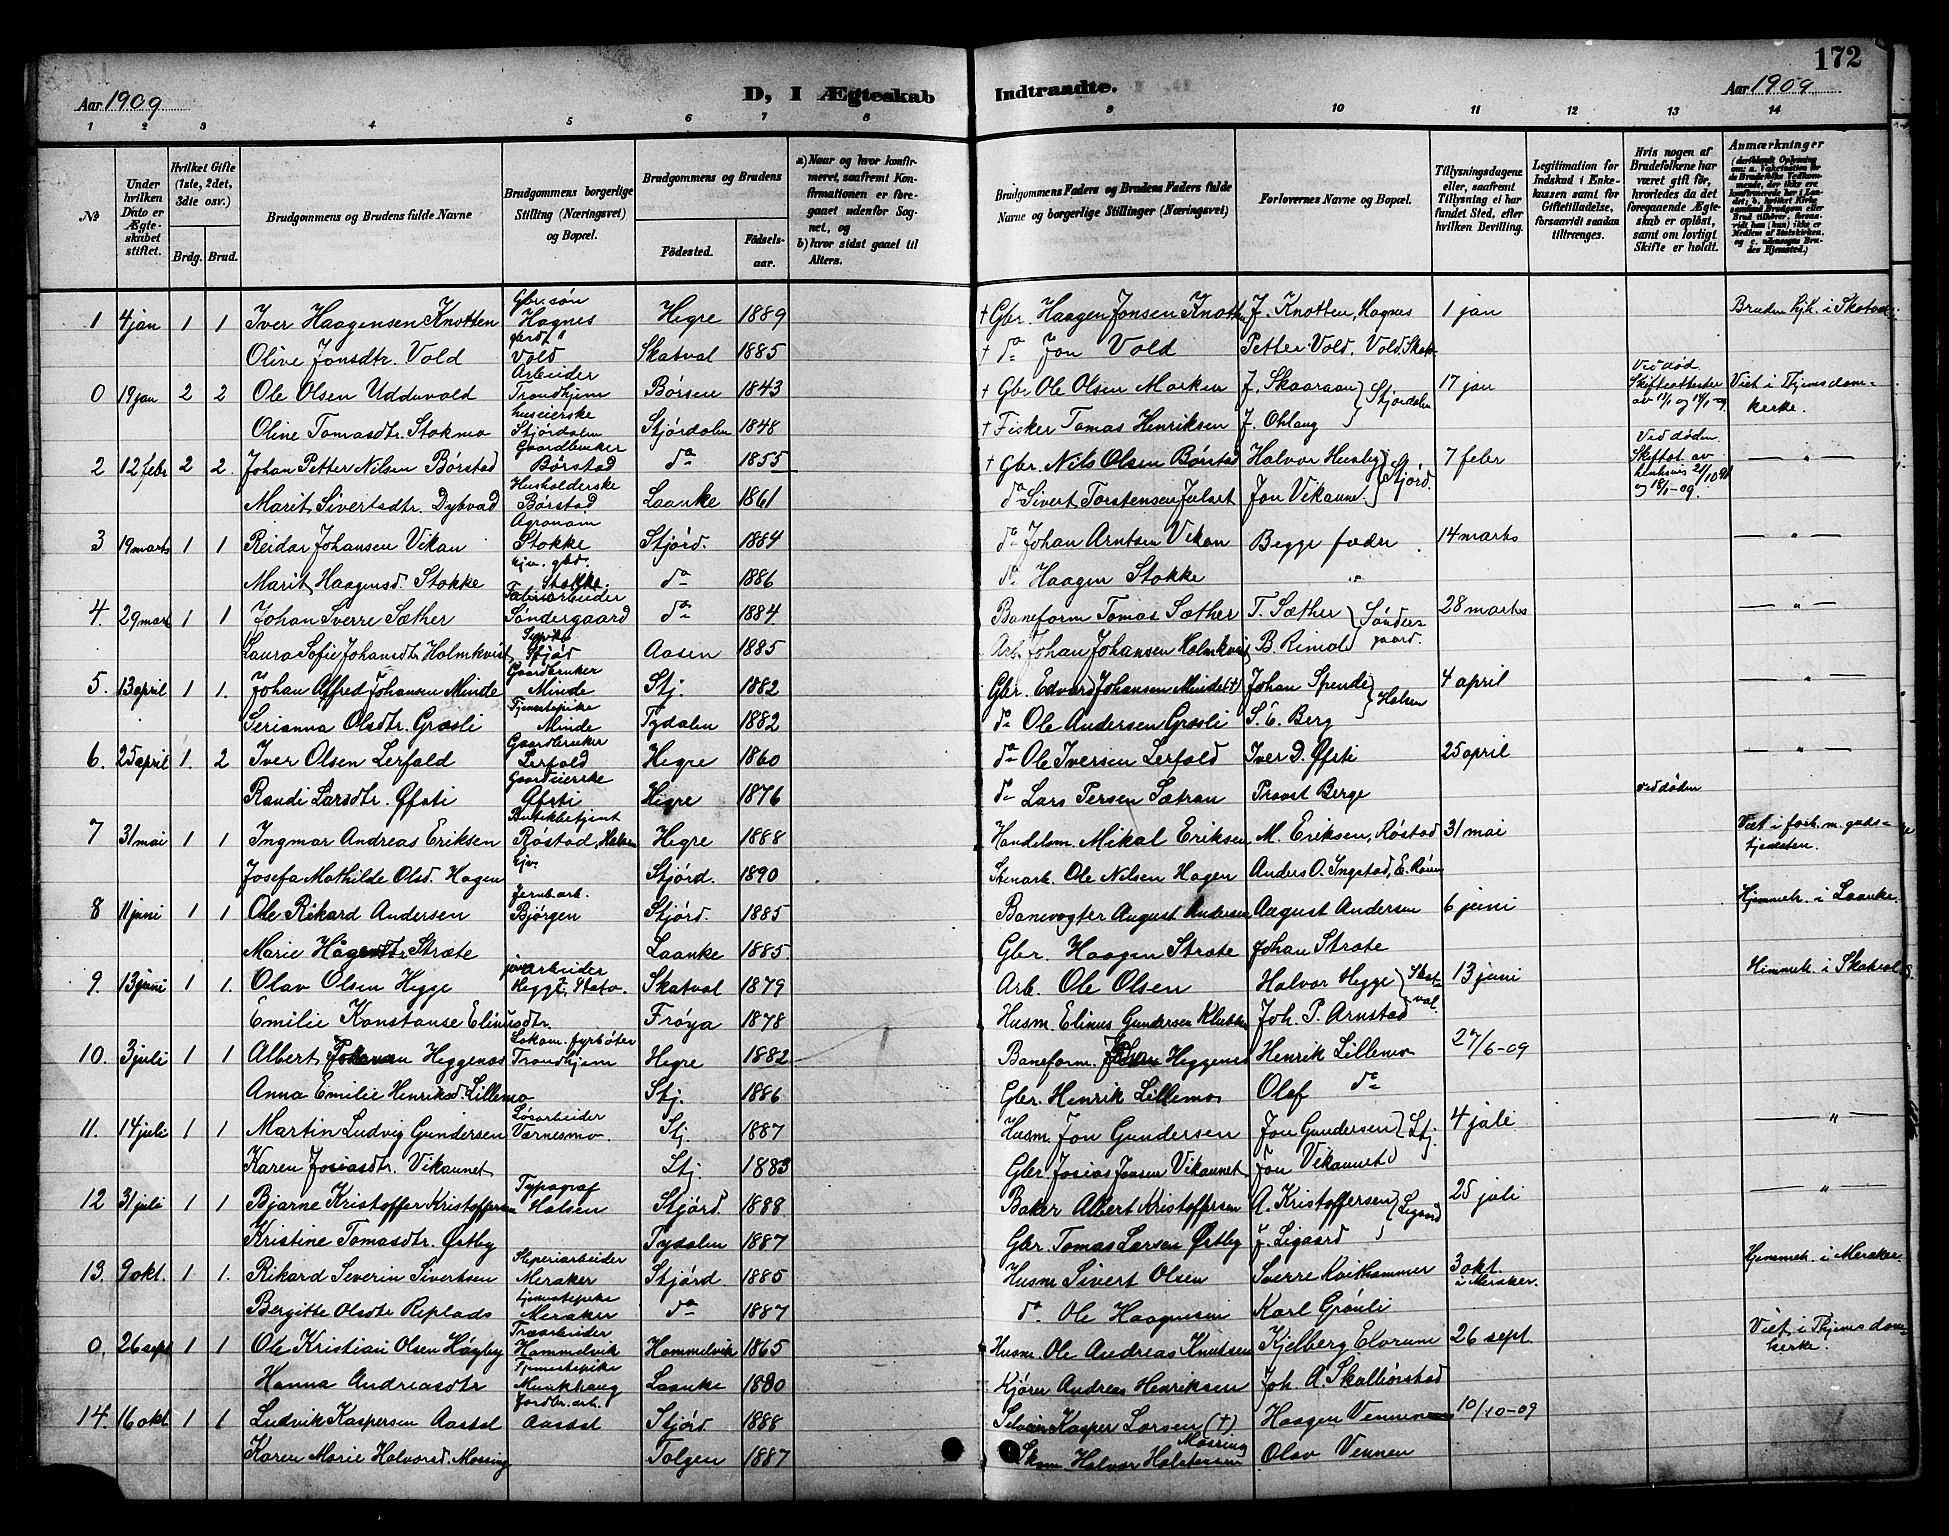 172
Aar 1909
D, I Ægteskab
Indtraadte.
Aar 1909
1 2 3 4 5 6 7 8 9 10 11 12 13 14
№
Under hvilken Dato er Ægteskabet stiftet.
Hvilket Gifte (1ste, 2det, 3die osv.)
Brdg. Brud.
Brudgommens og Brudens fulde Navne
Brudgommens borgerlige Stilling (Næringsvei) og Bopæl.
Brudgommens og Brudens
Fødested.
Fødselsaar.
a) Naar og hvor konfirmeret, saafremt Konfirmationen er foregaaet udenfor Sognet, og
b) hvor sidst gaaet til Alters.
Brudgommens Faders og Brudens Faders fulde Navne og borgerlige Stillinger (Næringsvei)
Forlovernes Navne og Bopæl.
Tillysningsdagene eller, saafremt Tillysning ei har fundet Sted, efter hvilken Bevilling.
Legitimation for Indskud i Enkekassen samt for Giftetilladelse, forsaavidt saadan tiltrænges.
Hvis nogen af Brudefolkene har været gift før, hvorledes da det foregaaende Ægteskab er opløst, samt om lovligt Skifte er holdt.
Anmærkninger
1 4 jan 1 1 Iver Haagensen Knotten Gbr. søn Hognes Hegre 1889 † Gbr. Haagen Jonsen Knotten J. Knotten, Hognes 1 jan Bruden hjh. i Skatval
Olive Jonsdtr. Vold Vold Skatval 1885 † do Jon Vold Petter Vold, Vold, Skatv.
0 19 jan 2 2 Ole Olsen Udduvold Arbeider Trondhjem Børsen 1843 † Gbr Ole Olsen Morken J. Skaaraan Stjørdalen 17 jan Ved død. Skifteattester av 13/1 og 14/1-09 Viet i Thjems domkerke.
Oline Tomasdtr. Stokmo huseierske Stjørdalen Stjördalen 1848 † Fisker Tomas Henriksen J. Øhlang
2 12 febr 2 2. Johan Petter Nilsen Børstad Gaardbruker Børstad do 1855 † Gbr. Nils Olsen Børstad Halvor Husby Stjørd. 7 febr Ved døden. Skiftet. av og 18/1-09. — „ —
Marit Sivertsdtr. Dybvad Husholderske Børstad Laanke 1861 do Sivert Torstensen Julset Jon Vikaune.
3 19 marts 1 1 Reidar Johansen Vikan Agronom Stokke Stjörd. 1884 do Johan Arntsen Vikan Begge fædre 14 marts — „ —
Marit Haagensd. Stokke hjv. gbd. Stokke. do 1886 do Haagen Stokke „
4. 29 mart 1 1 Johan Sverre Sæther Fabrikarbeider Søndergaard do 1884 Baneform Tomas Sæther T. Sæther Søndergaard. 28 marts — „ —
Laura Sofie Johansdtr Holmkvist Stjød Aasen 1885 Arb. Johan Johansen Holmkvist B. Rimol
5. 13 april 1 1. Johan Alfred Johansen Minde Gaardbruker Minde Stj. 1882 Gbr. Edvard Johansen Minde (†) Johan Spende Halsen 4 april — „ —
Serianna Olsdtr. Græsli Tjenestepike Minde Tydalen 1882 do Ole Andersen Græsli S. C. Berg
6. 25 april 1. 2 Iver Olsen Lerfald Gaardbruker Lerfald Hegre 1860 do Ole Iversen Lerfald Iver D. Øfsti 25 april — „ —
Randi Larsdtr. Øfsti Gaardeierske Øfsti Hegre 1876 do Lars Persen Sætran Provst Berge ved døden
7 31 mai 1 1 Ingmar Andreas Eriksen Butikbetjent Røstad, Halsen Hegre 1888 Handelsm. Mikal Eriksen M. Eriksen, Røstad 31 mai Viet i forb. m. gudstjenesten.
Josefa Mathilde Olsd. Hagen hjv. Stjörd. 1890 Stenarb. Ole Nilsen Hagen Anders O. Ingstad,
8 11 juni 1 1 Ole Rikard Andersen Jernb arb. Bjørgen Stjörd. 1885 Banevogter August Andersen August Andersen 6 juni Hjemmeh. i Laanke
Marie Hågensdtr Stræte Laanke 1885. Gbr. Haagen Stræte Johan Stræte
9. 13 juni 1 1. Olav Olsen Hegge jernarbeider Hegge, Skatv. Skatval 1879 Arb. Ole Olsen Halvor Hegge Skatval 13 juni Hjemmeh. i Skatval
Emilie Konstanse Elinusdtr. Frøya 1878 Husm. Elinus Gundersen Klubben Joh. P. Arnstad
10. 3 juli 1 1 Albert Johansen Heggenas Lokom. fyrbøter Trondhjem Hegre 1882 Baneform. Johan Heggenas Henrik Lillemo 27/6-09
Anna Emilie Henriksd. Lillemo Stj. 1886 Gbr. Henrik Lillemo Olaf do
11. 14 juli 1 1 Martin Ludvig Gundersen Løsarbeider Værnesmo. Stj. 1887 Husm. Jon Gundersen Jon Gundersen Stj 4 juli — „ —
Karen Josiasdtr. Vikaunet Stj 1883 Gbr Josias Jonsen Vikaunet Jon Vikaunet
12 31 juli 1 1 Bjarne Kristoffer Kristoffersen Typograf Halsen Stjörd. 1888 Baker Albert Kristoffersen A. Kristoffersen Ligaard 25 juli — „ —
Kristine Tomasdtr. Østby Tydalen 1887 Gbr. Tomas Larsen Østby J. Ligaard
13. 9 okt. 1 1. Rikard Severin Sivertsen Sliperiarbeider Meraker Stjørd. 1885 Husm Sivert Olsen Sverre Kvithammer 3 okt. i Meraker. Hjemmeh. i Meraker
Bergitte Olsdtr Replads tjenestepike Meraker do 1887 do Ole Haagensen Karl Grønli
0 26 sept 1 1 Ole Kristian Olsen Høyby Træarbeider Hommelvik Hommelvik 1865 Husm. Ole Andreas Knutsen Kjelberg Elverum 26 sept. Viet i Thjems domkerke.
Hanna Andreasdtr Tjenestepike Munkhaug Laanke 1880 Kjører Andreas Henriksen Joh. A. Skulbørstad
14. 16 okt. 1 1 Ludvik Kaspersen Aastel Jordbr. arb. Aastel Stjørd 1888 Kasper Larsen (†) Haagen Vennen 10/10-09
Karen Marie Halvorsd. Mossing Tolgen 1887 Skom Halvor Holstersen Mossing Olav Vennen